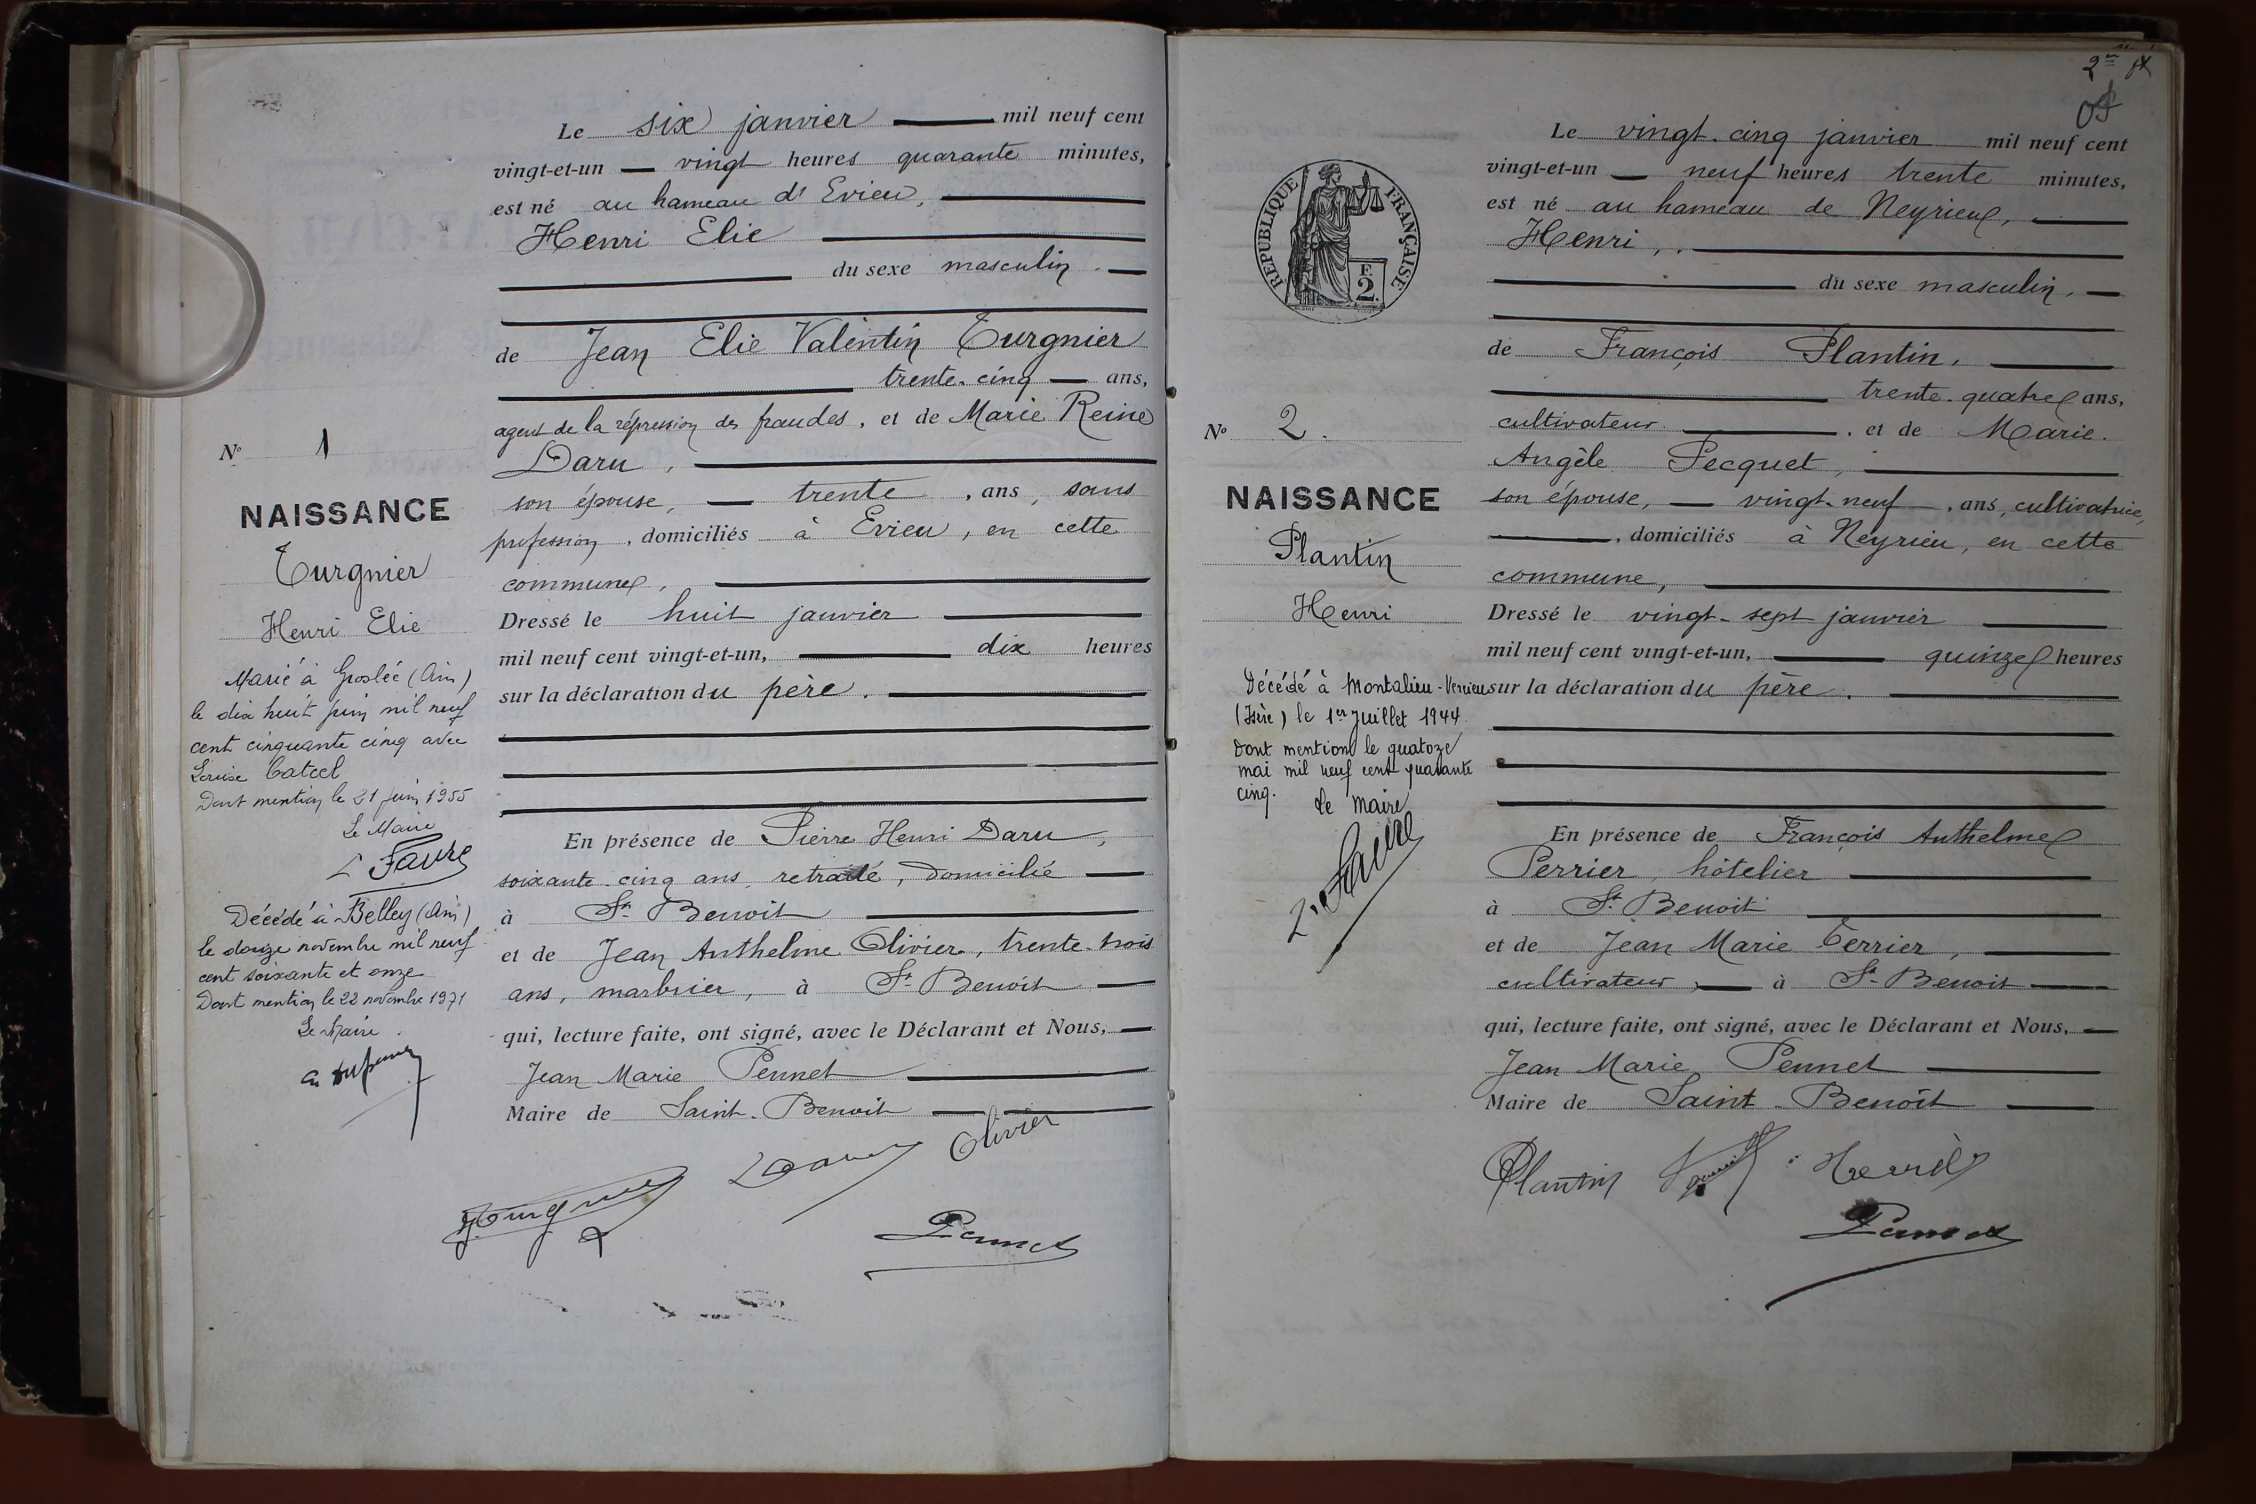 Le six janvier mil neuf cent
vingt-et-un vingt heures quarante minutes,
est né au hameau d' Evieu,
Henri Elie
du sexe masculin.
de Jean Elie Valentin Turgnier
trente-cinq ans,
agent de la répression des fraudes, et de Marie Reine
Daru,
son épouse, trente, ans, sans
profession, domiciliés à Evieu, en cette
commune,
Dressé le huit janvier
mil neuf cent vingt-et-un, dix heures
sur la déclaration du père.
En présence de Pierre Henri Daru,
soixante-cinq ans, retraité, domicilié
à St Benoit
et de Jean Anthelme Olivier, trente-trois
ans, marbrier, à St Benoit
qui, lecture faite, ont signé, avec le Déclarant et Nous,
Jean Marie Pennet
Maire de Saint-Benoit
Turgnier
Daru
Olivier
Pennet
No 1
NAISSANCE
Turgnier
Henri Elie
Marié à Groslée (Ain)
le dix huit juin mil neuf
cent cinquante cinq avec
Louise
Dont mention le 21 juin 1955
Le Maire
L Favre
Décédé à Belley (Ain)
le douze novembre mil neuf
cent soixante et onze
Dont mention le 22 novembre 1971
Le Maire.
2
Le vingt-cinq janvier mil neuf cent
vingt-et-un neuf heures trente minutes,
est né au hameau de Neyrieu,
Henri,
du sexe masculin,
de François Plantin,
trente-quatre ans,
cultivateur, et de Marie
Angèle Pecquet,
son épouse, vingt-neuf, ans, cultivatrice,
, domiciliés à Neyrieu, en cette
commune,
Dressé le vingt-sept janvier
mil neuf cent vingt-et-un, quinze heures
sur la déclaration du père.
En présence de François Anthelme
Perrier, hôtelier
à St Benoit
et de Jean Marie Terrier,
cultivateur, à St Benoit
qui, lecture faite, ont signé, avec le Déclarant et Nous,
Jean Marie Pennet
Maire de Saint-Benoit
Plantin
Pennet
RÉPUBLIQUE FRANÇAISE
F.
2.
No 2.
NAISSANCE
Plantin
Henri
Décédé à Montalieu-Vercieu
(Isère) le 1er Juillet 1944
Dont mention le quatoze
mai mil neuf cent quarante
cinq.
Le Maire
L. Favre